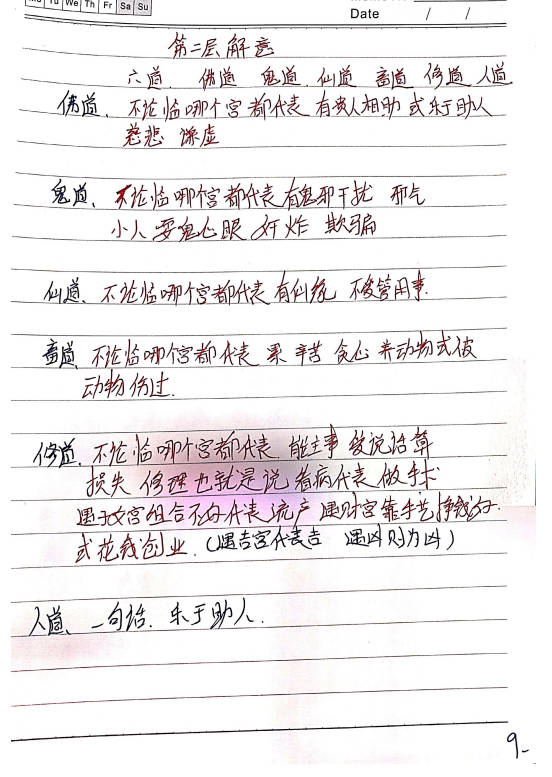 Mo Tu We Th Fr Sa Su
Date / /
第二层解意
六道 佛道 鬼道 仙道 畜道 修道 人道
佛道、不论临哪个宫都代表 有贵人相助 或乐于助人
慈悲 谦虚
鬼道、不论临哪个宫都代表 有鬼邪干扰 邪气
小人 耍鬼心眼 奸炸 欺骗
仙道、不论临哪个宫都代表 有仙缘 不受管用事.
畜道 不论临哪个宫都代表 累 辛苦 贪心 养动物或被
动物伤过.
修道、不论临哪个宫都代表 能主事 爱说话算
损失 修理也就是说 看病代表做手术
遇子女宫组合不好代表流产 遇财宫靠手艺挣钱的.
或花钱创业.(遇吉宫代表吉 遇凶则为凶)
人道、一句话. 乐于助人.
9-